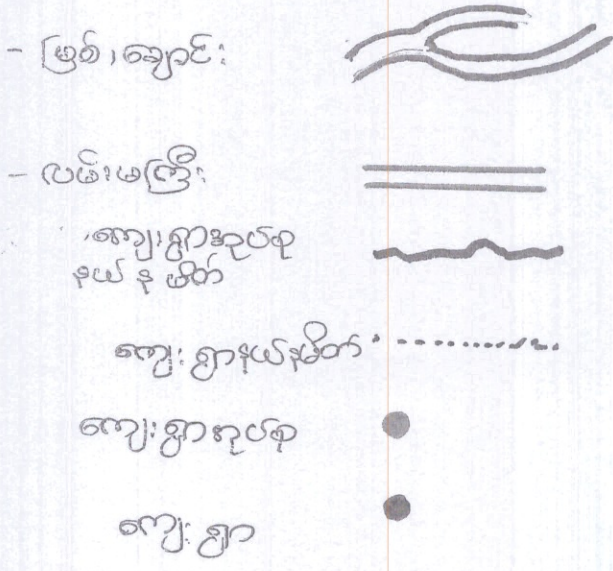 - မြစ်၊ချောင်း
- လမ်းမကြီး
ကျေးရွာအုပ်စု
နယ်နမိတ်
ကျေးရွာနယ်နမိတ်
ကျေးရွာအုပ်စု
ကျေးရွာ